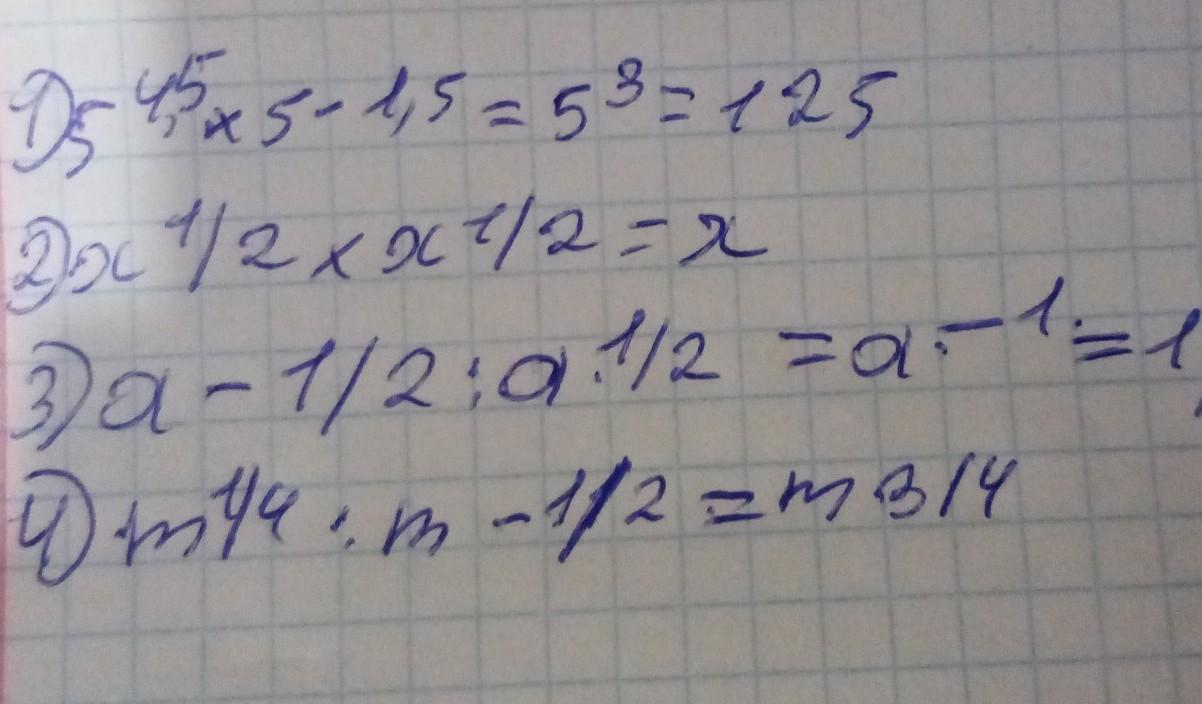 1) 5 4,5 × 5 - 1,5 = 5³ = 125
2) x 1/2 × x 1/2 = x
3) a - 1/2 : a 1/2 = a - 1 = 1
4) m 1/4 : m - 1/2 = m 3/4